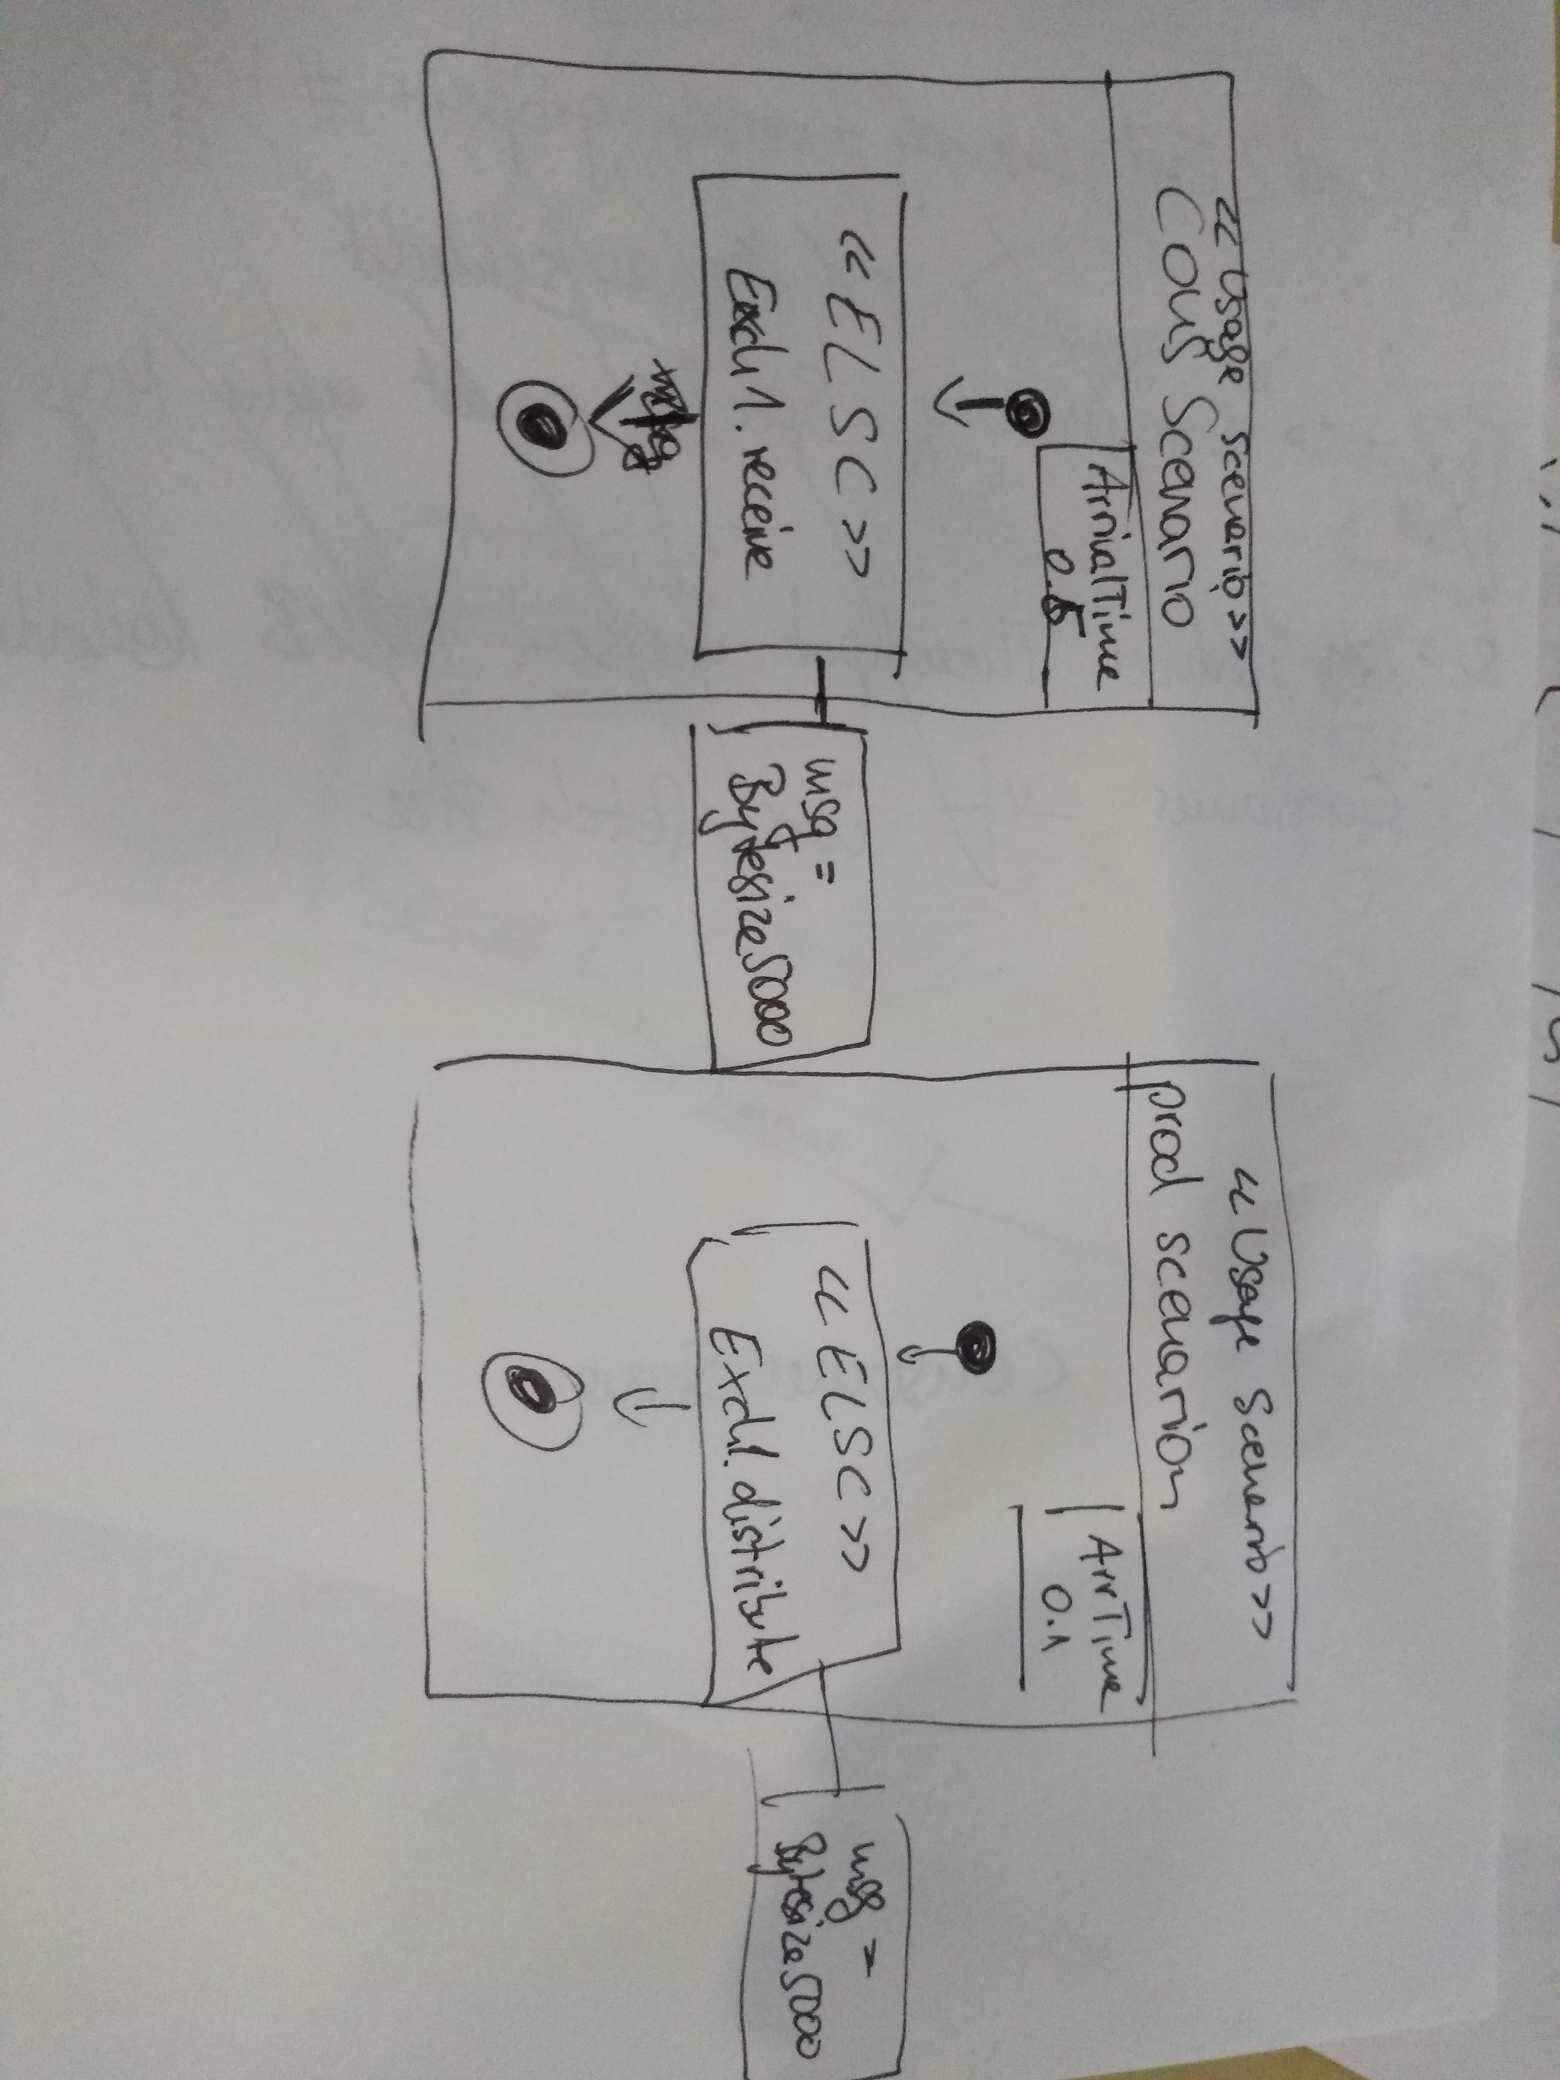 <<Usage Scenario>>
Cons Scenario
ArrivalTime
<<ELSC>>
receive
msg =
Bytesize 5000
<<Usage Scenario>>
prod scenarion
ArrTime
0.1
<<ELSC>>
distribute
msg =
Bytesize 5000